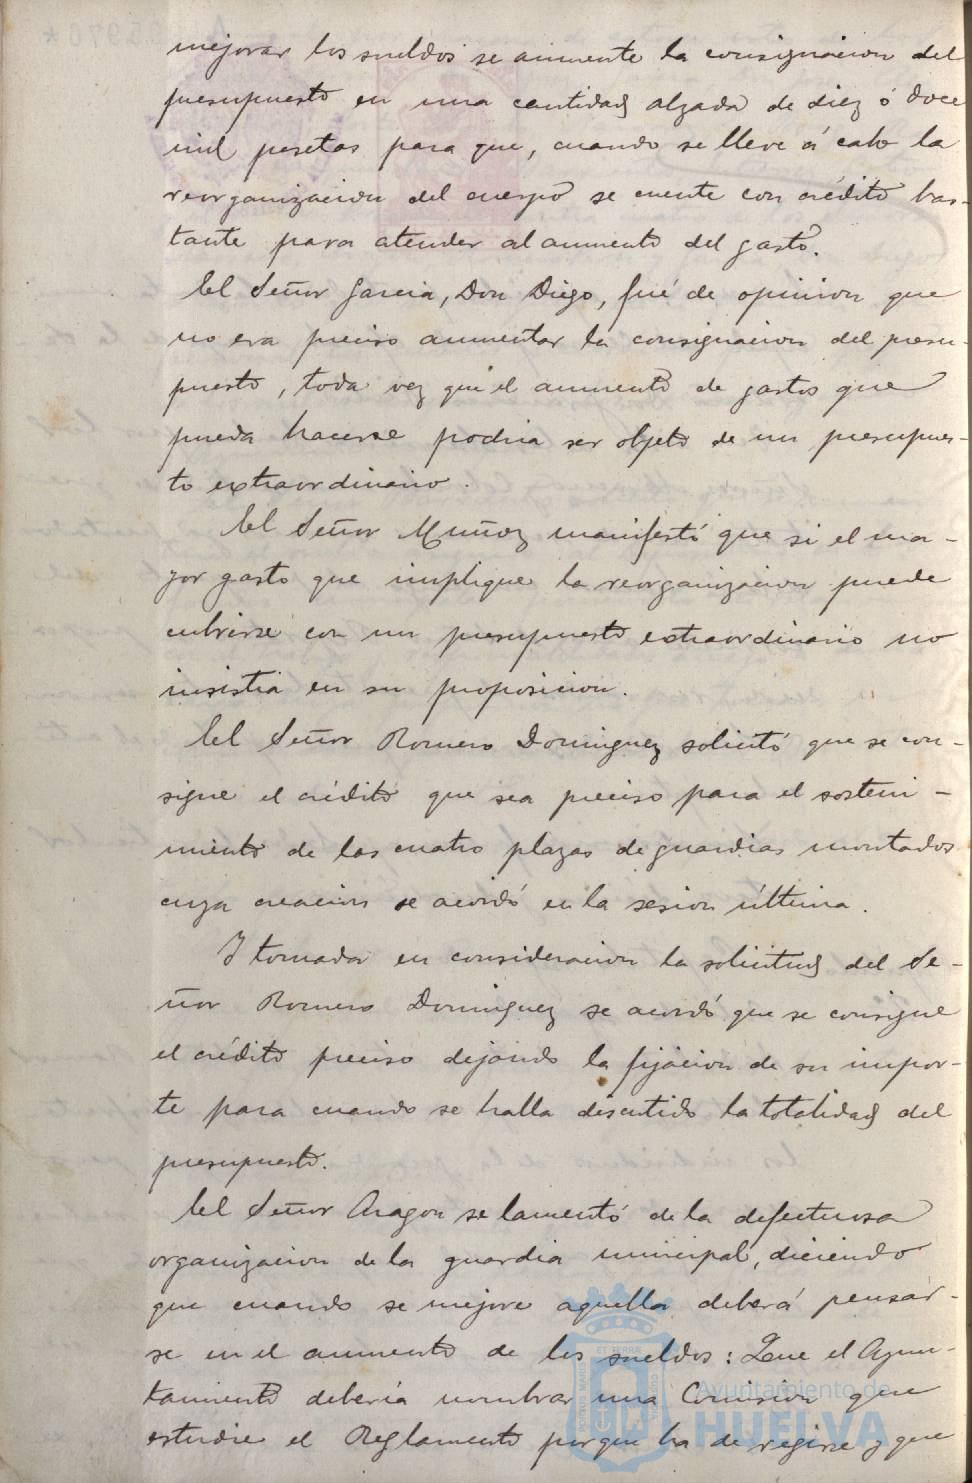 mejorar los sueldos se aumente la consignacion del
presupuesto en una cantidad alzada de diez ó doce
mil pesetas para que, cuando se lleve á cabo la
reorganizacion del cuerpo se cuente con crédito bas-
tante para atender al aumento del gasto.
El Señor Garcia, Don Diego, fué de opinion que
no era preciso aumentar la consignacion del presu-
puesto, toda vez que el aumento de gastos que
pueda hacerse podria ser objeto de un presupues-
to extraordinario.
El Señor Muñoz manifestó que si el ma-
yor gasto que implique la reorganizacion puede
cubrirse con un presupuesto extraordinario no
insistia en su proposicion.
El Señor Romero Dominguez solicitó que se con-
signe el crédito que sea preciso para el sosteni-
miento de las cuatro plazas de guardias montados
cuya creacion se acordó en la sesion última.
Y tomada en consideracion la solicitud del Se-
ñor Romero Dominguez se acordó que se consigne
el crédito preciso dejando la fijacion de su impor-
te para cuando se halla discutido la totalidad del
presupuesto.
El Señor Aragon se lamentó de la defectuosa
organizacion de la guardia municipal, diciendo
que cuando se mejore aquella deberá pensar-
se en el aumento de los sueldos: Que el Ayun-
tamiento deberia nombrar una Comision que
estudie el Reglamento porque ha de regirse y que
Ayuntamiento de
HUELVA